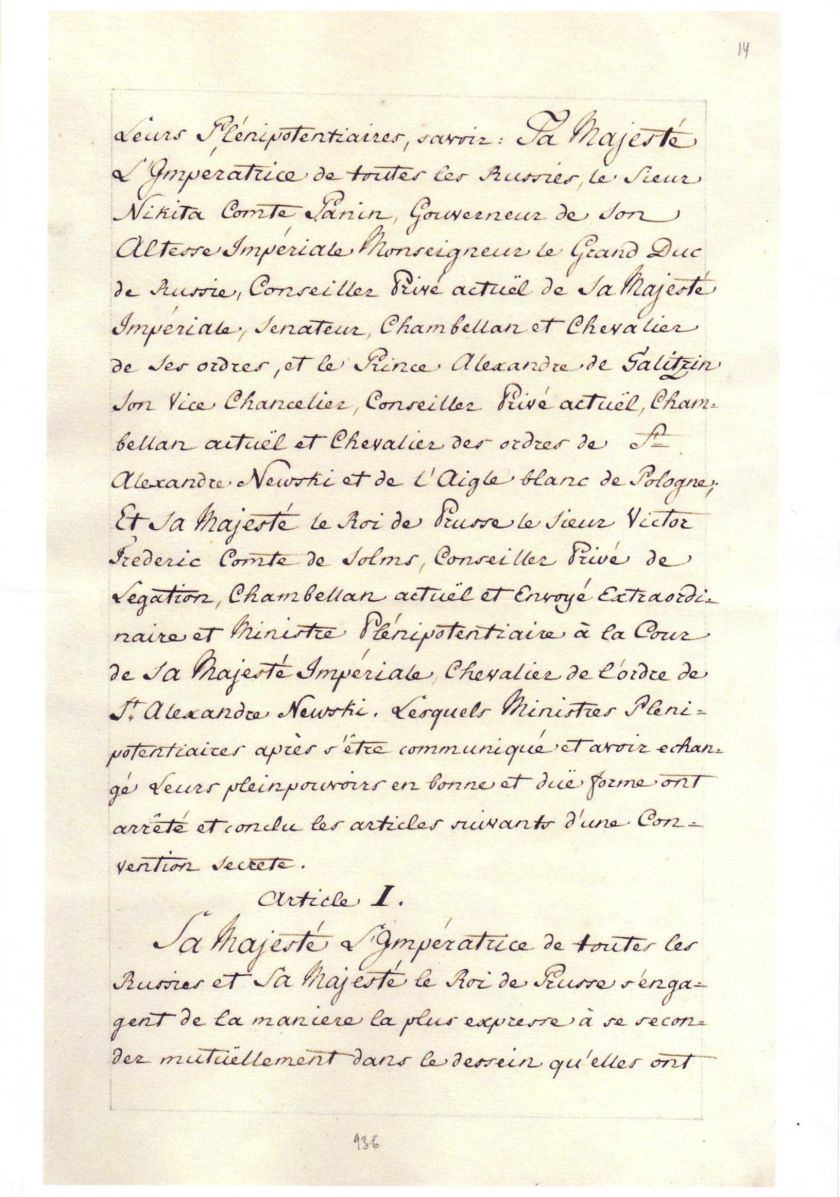 14
Leurs Plénipotentiaires, savoir: Sa Majesté
L'Impératrice de toutes les Russies, le Sieur
Nikita Comte Panin, Gouverneur de Son
Altesse Impériale Monseigneur le Grand Duc
de Russie, Conseiller Privé actuël de Sa Majesté
Impériale, Senateur, Chambellan et Chevalier
de Ses ordres, et le Prince Alexandre de Galitzin
Son Vice Chancelier, Conseiller Privé actuël, Cham=
bellan actuël et Chevalier des ordres de St.
Alexandre Newski et de l'Aigle blanc de Pologne;
Et Sa Majesté le Roi de Prusse le Sieur Victor
Frederic Comte de Solms, Conseiller Privé de
Legation, Chambellan actuël et Envoyé Extraordi=
naire et Ministre Plénipotentiaire à la Cour
de Sa Majesté Impériale, Chevalier de l'ordre de
St. Alexandre Newski. Lesquels Ministres Pleni=
potentiaires après s'être communiqué et avoir echan=
gé Leurs pleinpouvoirs en bonne et duë forme ont
arrêté et conclu les articles suivants d'une Con=
vention secrete.
Article I.
Sa Majesté L'Impératrice de toutes les
Russies et Sa Majesté le Roi de Prusse s'enga=
gent de la maniere la plus expresse à se secon=
der mutuëllement dans le dessein qu'elles ont
936